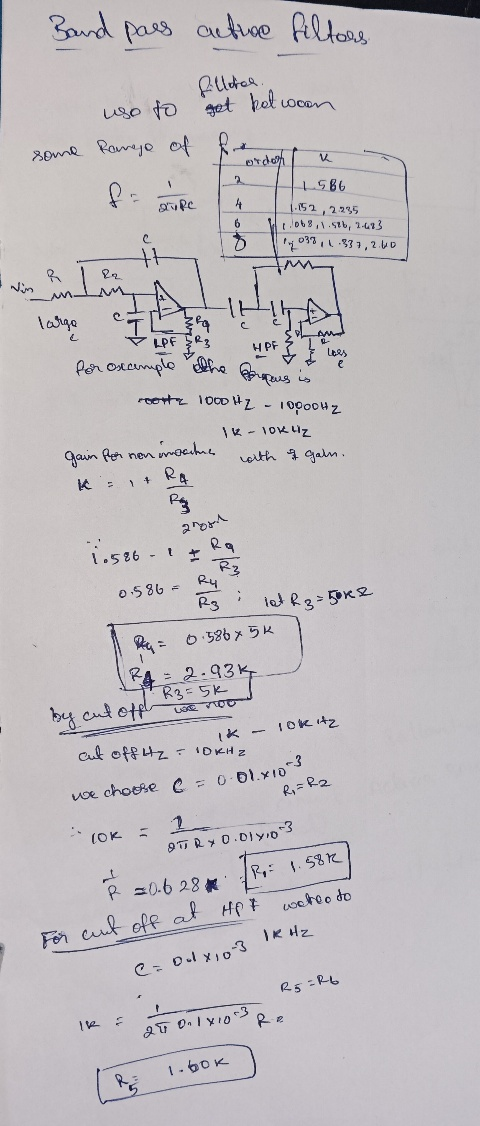 Band pass active filters
filter
use to get between
some Range of f
f = 1/2πRC
order K
2 1.586
4 1.152, 2.235
6 1.068, 1.586, 2.483
8 1.038, 1.337, 2.60
Vin R R2 C
C R4 C C
large LPF R3 HPF R less
c c
For example the is
1000 HZ - 10,000HZ
1K - 10KHZ
gain for non with gain.
K = 1 + R4/R3
2
1.586 - 1 ± R4/R3
0.586 = R4/R3 ; let R3 = 50KΩ
R4 = 0.586 x 5K
R4 = 2.93K
R3 = 5K
by cut off
1K - 10KHZ
cut off HZ = 10KHZ
we choose C = 0.01 x 10^-3
R1 = R2
∴ 10K = 1/2πR x 0.01x10^-3
1/R = 0.628 R1 = 1.58K
For cut off at HPF
1KHZ
C = 0.1 x 10^-3
R5 = R6
1K = 1/2π 0.1x10^-3 R
R5 = 1.60K